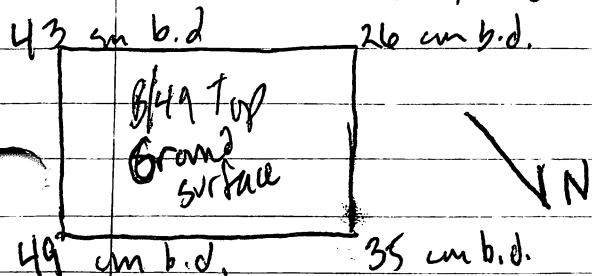 43 cm b.d 26 cm b.d.
B/49 Top
Ground
surface
N
49 cm b.d. 35 cm b.d.